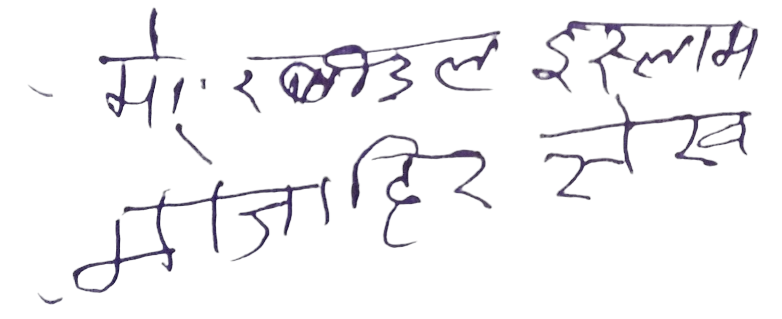 मो. रबीउल इस्लाम
मोजाहिर सेख